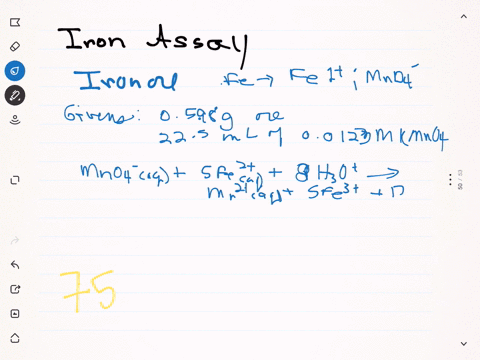 Iron Assay
Iron ore Fe → Fe 2+ ; MnO4-
Givens: 0.598g ore
22.5 mL of 0.0123 M KMnO4
MnO4-(aq) + 5Fe2+(aq) + 8 H3O+ →
Mn2+(aq) + 5Fe3+ +
75